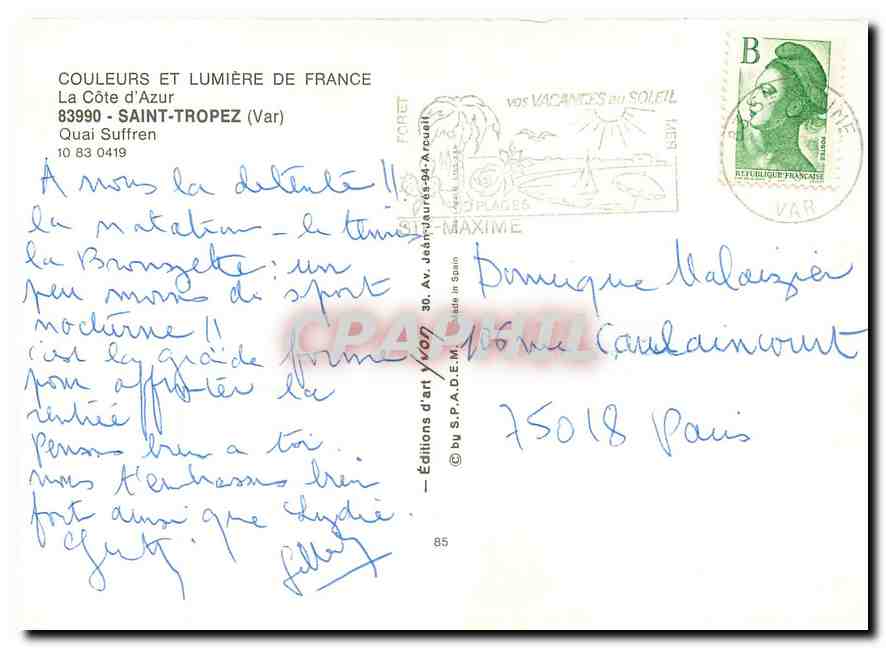 COULEURS ET LUMIÈRE DE FRANCE
La Côte d'Azur
83990 - SAINT-TROPEZ (Var)
Quai Suffren
10 83 0419
A nous la détente !!
la natation - le tennis
la Bronzette : un
peu moins de sport
nocturne !!
c'est la grande forme
pour affronter la
rentrée
Pensons bien a toi
nous t'embrassons bien
fort ainsi que Lydie.
— Éditions d'art yvon 30. Av. Jean-Jaurès-94-Arcueil
© by S.P.A.D.E.M. Made in Spain
85
FORET
VOS VACANCES au SOLEIL
MER
PLAGES
STE-MAXIME
B
POSTES
REPUBLIQUE FRANÇAISE
MAXIME
VAR
Dominique
106 rue Caulaincourt
75018 Paris
CPAPHIL